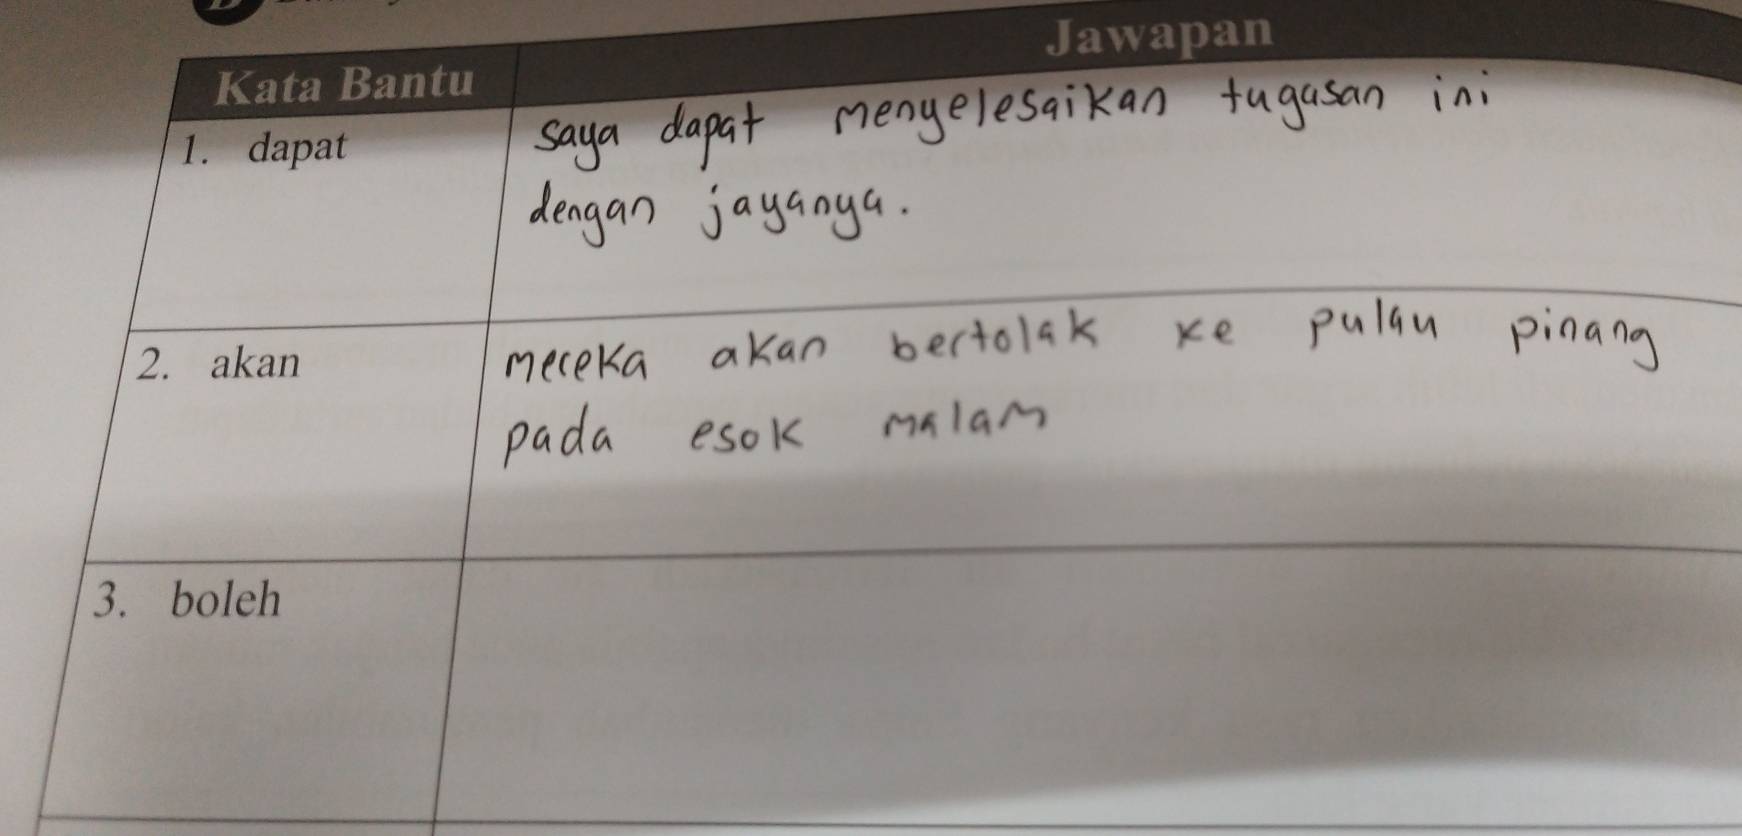 Kata Bantu
Jawapan
1. dapat
saya dapat menyelesaikan tugasan ini
dengan jayanya.
2. akan
mereka akan bertolak ke pulau pinang
pada esok malam
3. boleh